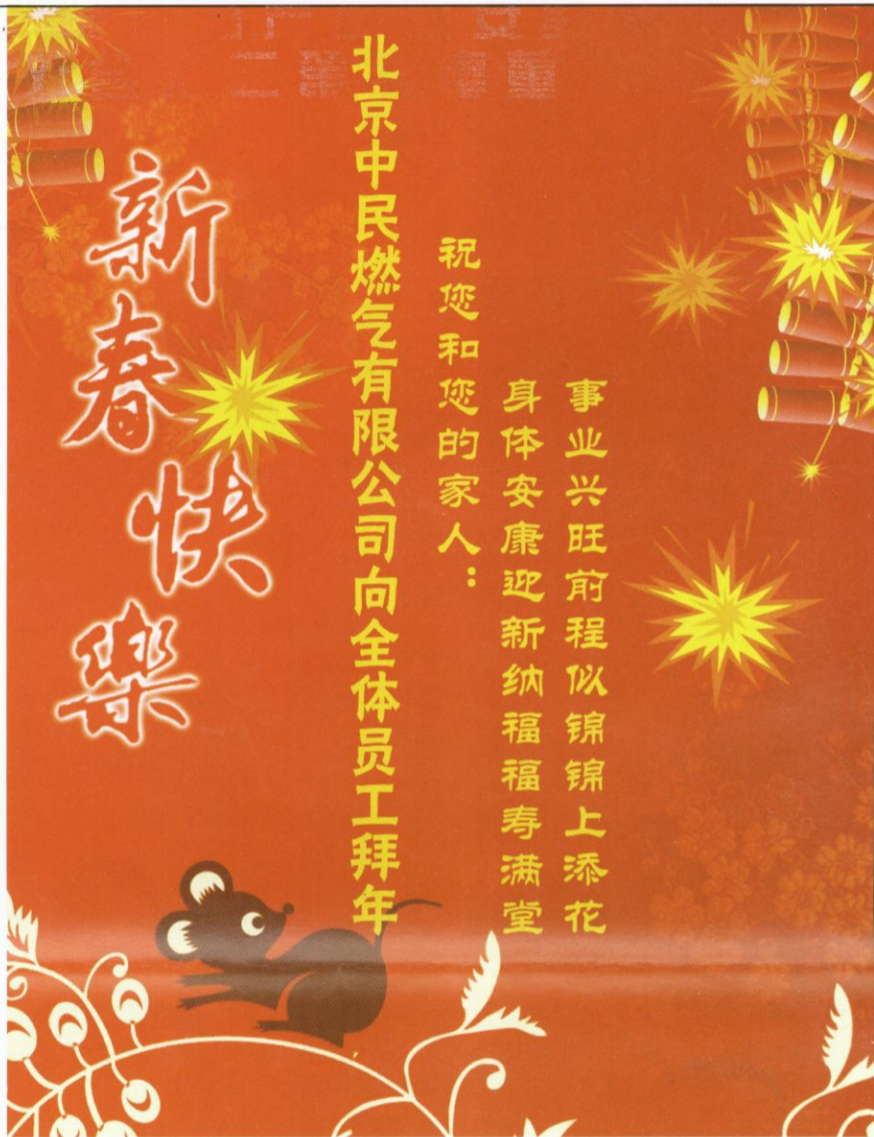 新春快樂
北京中民燃气有限公司向全体员工拜年
祝您和您的家人：
身体安康迎新纳福福寿满堂
事业兴旺前程似锦锦上添花